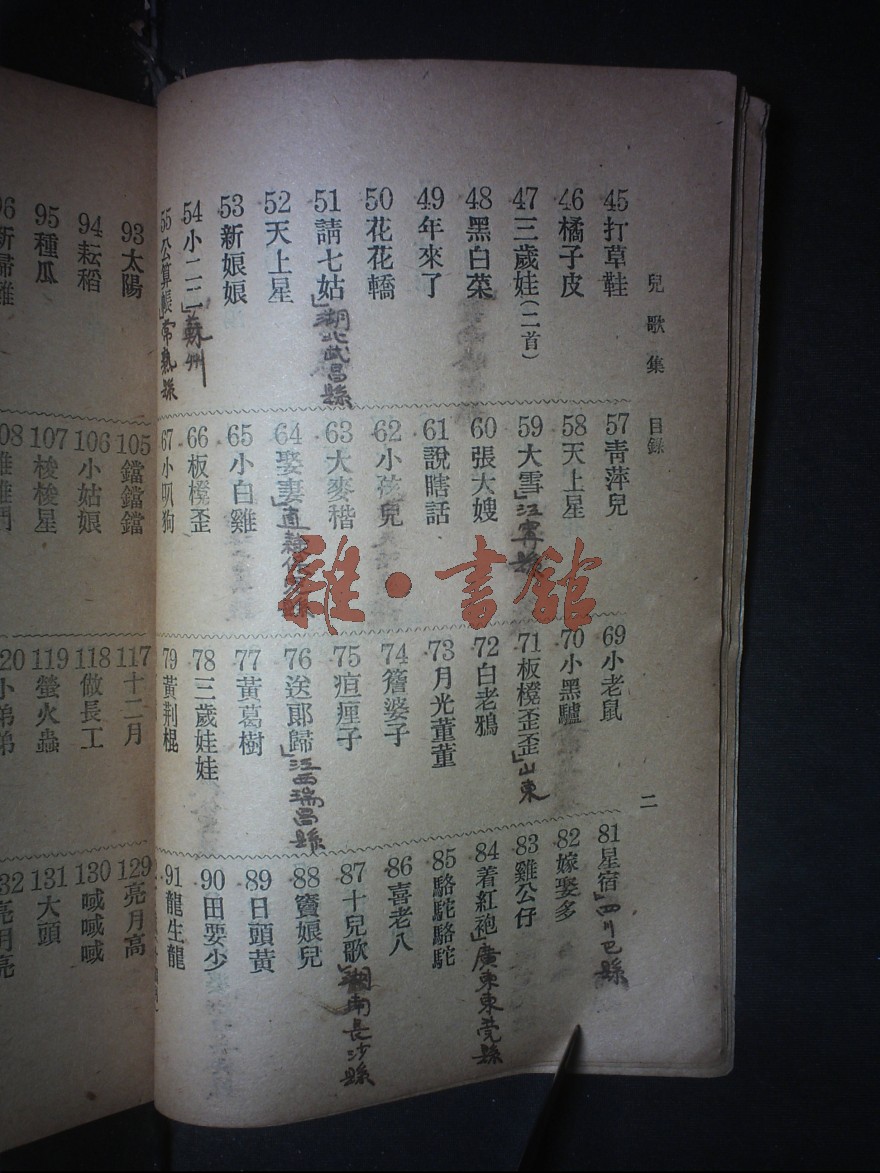 兒歌集 目錄 二
45打草鞋
46橘子皮
47三歲娃(二首)
48黑白菜
49年來了
50花花轎
51請七姑」湖北武昌縣
52天上星
53新娘娘
54小二二」蘇州
55公算帳」常熟縣
57青萍兒
58天上星
59大雪」江寧縣
60張大嫂
61說瞎話
62小孩兒
63大麥稭
64娶妻」直隸
65小白雞
66板櫈歪
67小叭狗
69小老鼠
70小黑驢
71板櫈歪歪」山東
72白老鴉
73月光董董
74簷婆子
75痘痲子
76送郎歸」江西瑞昌縣
77黃葛樹
78三歲娃娃
79黃荆棍
81星宿」四川巴縣
82嫁娶多
83雞公仔
84着紅袍」廣東東莞縣
85駱駝駱駝
86喜老八
87十兒歌」湖南長沙縣
88竇娘兒
89日頭黃
90田要少
91龍生龍
93太陽
94耘稻
95種瓜
105鐺鐺鐺
106小姑娘
107梭梭星
117十二月
118做長工
119螢火蟲
129亮月高
130喊喊喊
131大頭
雜·書館